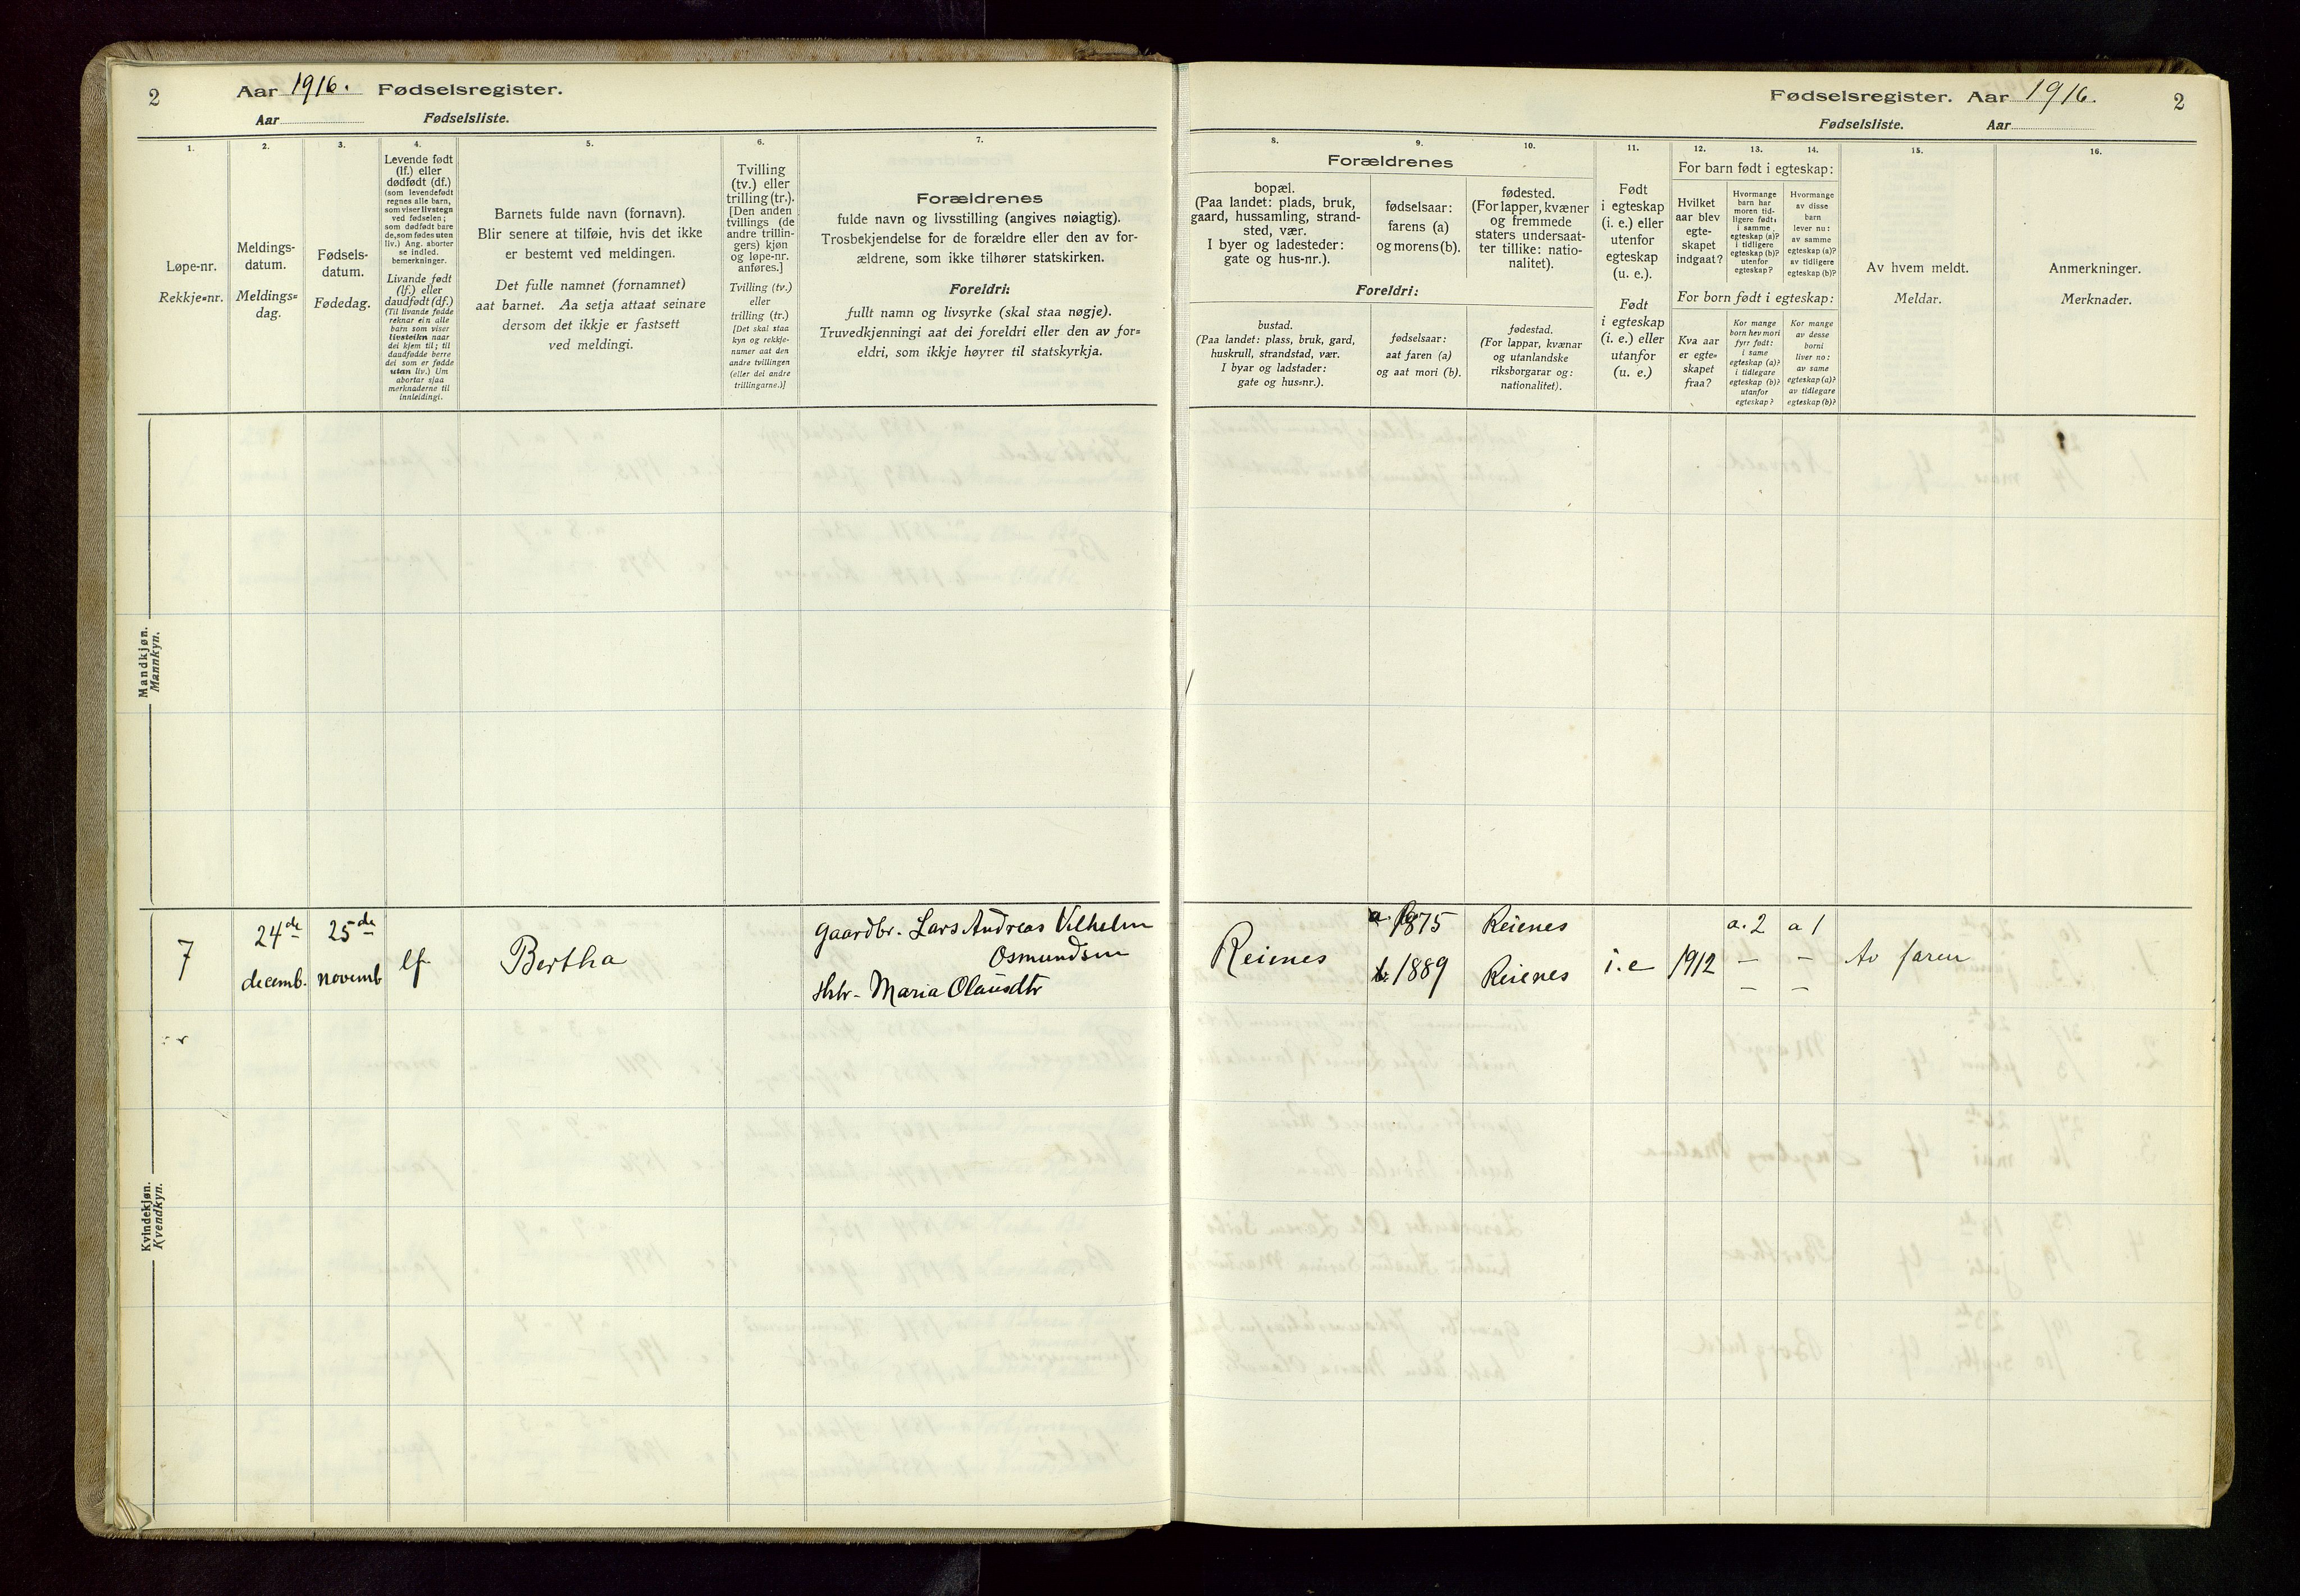 2
Aar 1916. Fødselsregister.
Aar Fødselsliste.
1.
Løpe-nr.
Rekkje-nr.
2.
Meldings-
datum.
Meldings-
dag.
3.
Fødsels-
datum.
Fødedag.
4.
Levende født
(lf.) eller
dødfødt (df.)
(som levendefødt
regnes alle barn,
som viser livstegn
ved fødselen;
som dødfødt bare
de, som fødes uten
liv.) Ang. aborter
se indled.
bemerkninger.
Livande født
(lf.) eller
daudfødt (df.)
(Til livande fødde
reknar ein alle
barn som viser
livsteikn naar
dei kjem til; til
daudfødde berre
dei som er fødde
utan liv.) Um
abortar sjaa
merknaderne til
innleidingi.
5.
Barnets fulde navn (fornavn).
Blir senere at tilføie, hvis det ikke
er bestemt ved meldingen.
Det fulle namnet (fornamnet)
aat barnet. Aa setja attaat seinare
dersom det ikkje er fastsett
ved meldingi.
6.
Tvilling
(tv.) eller
trilling (tr.).
[Den anden
tvillings (de
andre trillin-
gers) kjøn
og løpe-nr.
anføres.]
Tvilling (tv.)
eller
trilling (tr.)
[Det skal staa
kyn og rekkje-
numer aat den
andre tvillingen
(eller dei andre
trillingarne.)]
7.
Forældrenes
fulde navn og livsstilling (angives nøiagtig).
Trosbekjendelse for de forældre eller den av for-
ældrene, som ikke tilhører statskirken.
Foreldri:
fullt namn og livsyrke (skal staa nøgje).
Truvedkjenningi aat dei foreldri eller den av for-
eldri, som ikkje høyrer til statskyrkja.
Mandkjøn.
Mannkyn.
Kvindekjøn.
Kvendkyn.
7
24de
decemb.
25de
novemb
lf.
Bertha
Gaardbr. Lars Andreas Vilhelm
Osmundsen
Hstr. Maria Olausdtr
Fødselsregister. Aar 1916.
2
Fødselsliste. Aar
8.
Forældrenes
bopæl.
(Paa landet: plads, bruk,
gaard, hussamling, strand-
sted, vær.
I byer og ladesteder:
gate og hus-nr.).
Foreldri:
bustad.
(Paa landet: plass, bruk, gard,
huskrull, strandstad, vær.
I byar og ladstader:
gate og hus-nr.).
9.
fødselsaar:
farens (a)
og morens (b).
fødselsaar:
aat faren (a)
og aat mori (b).
10.
fødested.
(For lapper, kvæner
og fremmede
staters undersaat-
ter tillike: natio-
nalitet).
fødestad.
(For lappar, kvænar
og utanlandske
riksborgarar og:
nationalitet).
11.
Født
i egteskap
(i. e.) eller
utenfor
egteskap
(u. e.).
Født
i egteskap
(i. e.) eller
utanfor
(u. e.)
12.
13.
14.
For barn født i egteskap:
Hvilket
aar blev
egte-
skapet
indgaat?
Hvormange
barn har
moren tid-
ligere født:
i samme
egteskap (a)?
i tidligere
egteskap (b)?
utenfor
egteskap?
Hvormange
av disse
barn
lever nu:
av samme
egteskap (a)?
av tidligere
egteskap (b)?
For born født i egteskap:
Kva aar
er egte-
skapet
fraa?
Kor mange
born hev mori
fyrr født:
i same
egteskap (a)?
i tidlegare
egteskap (b)?
utanfor
egteskap?
Kor mange
av desse
borni
liver no:
av same
egteskap (a)?
av tidlegare
egteskap (b)?
15.
Av hvem meldt.
Meldar.
16.
Anmerkninger.
Merknader.
Reienes
a. 1875
b. 1889
Reienes
Reienes
i.e
1912
a. 2
–
–
a 1
–
–
Av faren